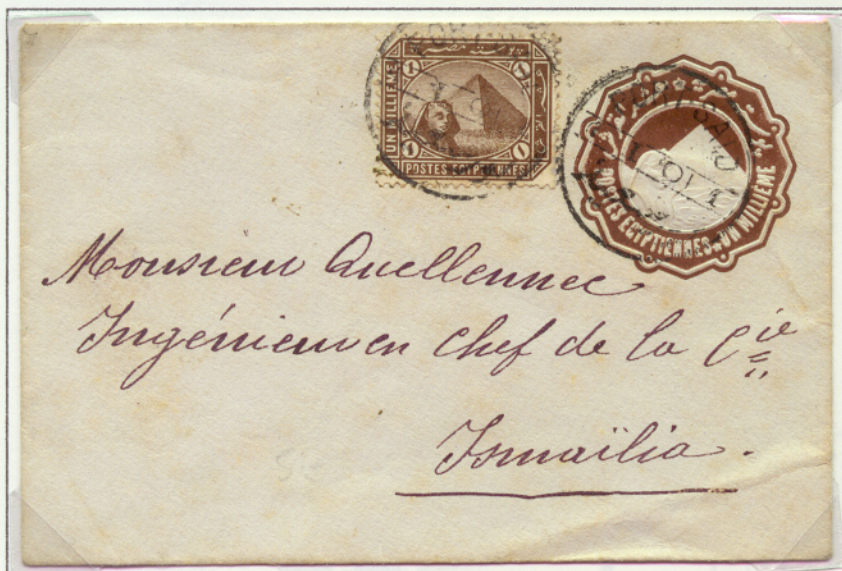 بوستة مصرية
UN MILLIEME
1
1
1
1
POSTES EGYPTIENNES
PORT SAID
POSTES EGYPTIENNES UN MILLIEME
Monsieur Quellennec
Ingénieur en Chef de la Cie
Ismaïlia.